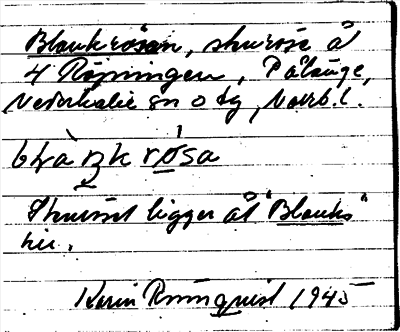 Blankrösan, skurose å
4 Röjningen, Pålänge,
Nederkalix sn o tg, Norrb. l.
blàŋk rósa
Skurset ligger åt "Blanks"
hu.
Karin Rönnquist 1945